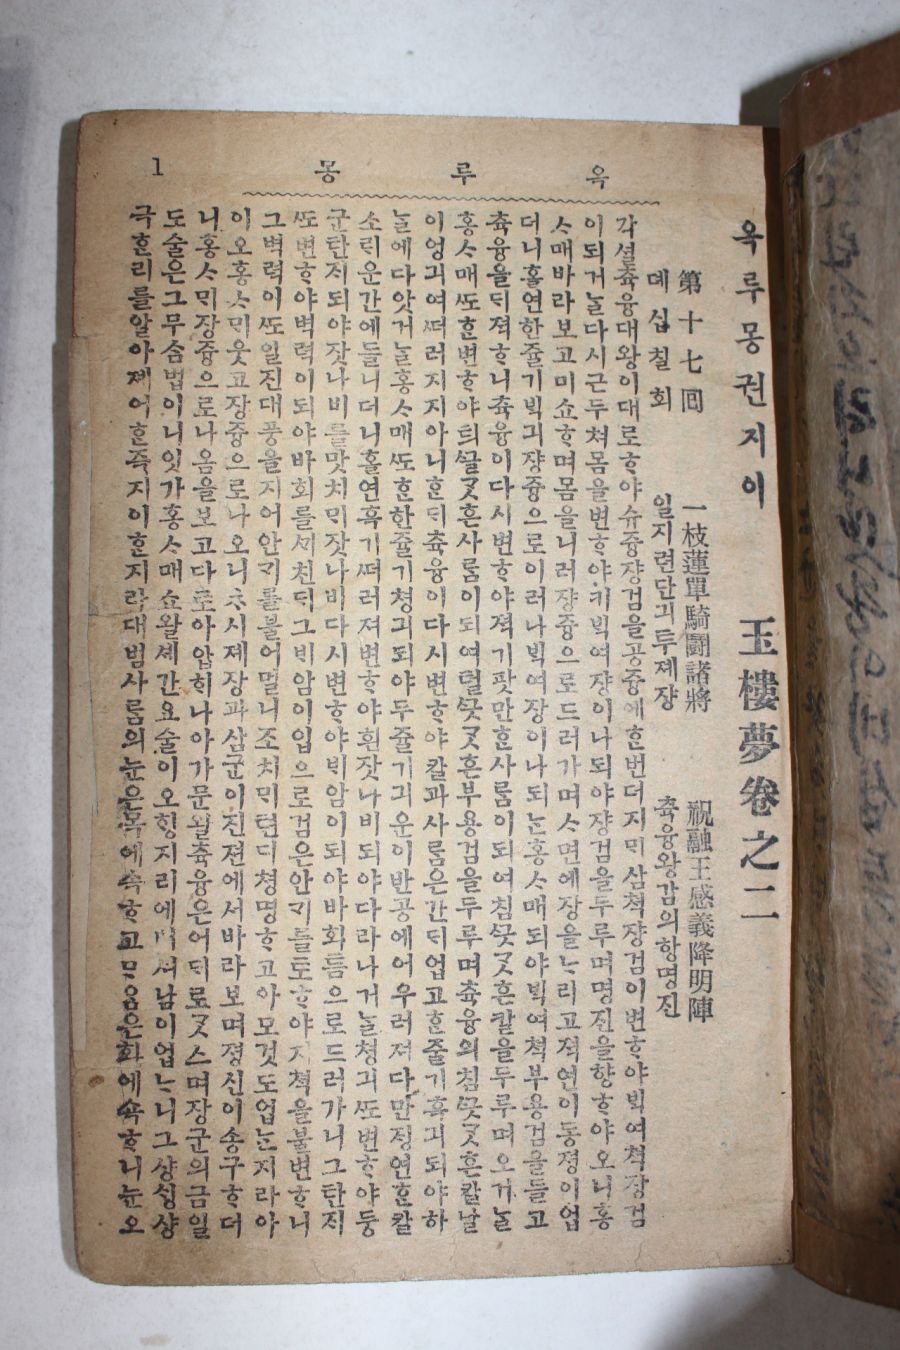 옥루몽 1
옥루몽권지이 玉樓夢卷之二
第十七回 一枝蓮單騎鬪諸將 祝融王感義降明陣
뎨십칠회 일지련단긔투졔쟝 츅융왕감의항명진
각셜츅융대왕이대로ᄒᆞ야슈즁쟝검을공즁에ᄒᆞᆫ번더지ᄆᆡ삼쳑쟝검이변ᄒᆞ야ᄇᆡᆨ여쳑장검
이되거ᄂᆞᆯ다시근두쳐몸을변ᄒᆞ야키ᄇᆡᆨ여쟝이나되야쟝검을두루며명진을향ᄒᆞ야오니홍
ᄉᆞ매바라보고미쇼ᄒᆞ며몸을니러쟝즁으로드러가며ᄉᆞ면에장을ᄂᆞ리고젹연이동졍이업
더니홀연한쥴기ᄇᆡᆨ긔쟝즁으로이러나ᄇᆡᆨ여장이나되ᄂᆞᆫ홍ᄉᆞ매되야ᄇᆡᆨ여쳑부용검을들고
츅융을ᄃᆡ젹ᄒᆞ니츅융이다시변ᄒᆞ야젹기팟만ᄒᆞᆫ사ᄅᆞᆷ이되여침ᄭᅳᆺᄀᆞᆺ흔칼을두루며오거ᄂᆞᆯ
홍ᄉᆞ매ᄯᅩᄒᆞᆫ변ᄒᆞ야틔ᄭᅳᆯᄀᆞᆺ흔사ᄅᆞᆷ이되여털ᄭᅳᆺᄀᆞᆺ흔부용검을두루며츅융의침ᄭᅳᆺᄀᆞᆺ흔칼날
이엉긔여ᄯᅥ러지지아니ᄒᆞᆫᄃᆡ츅융이다시변ᄒᆞ야칼과사ᄅᆞᆷ은간ᄃᆡ업고ᄒᆞᆫ줄기흑긔되야하
ᄂᆞᆯ에다앗거ᄂᆞᆯ홍ᄉᆞ매ᄯᅩᄒᆞᆫ한쥴기쳥긔되야두쥴기긔운이반공에어우러져다만정연ᄒᆞᆫ칼
소ᄅᆡ운간에들니더니홀연흑기ᄯᅥ러져변ᄒᆞ야흰잣나비되야다라나거ᄂᆞᆯ쳥긔ᄯᅩ변ᄒᆞ야둥
군탄지되야잣나비를맛치ᄆᆡ잣나비다시변ᄒᆞ야ᄇᆡ암이되야바회틈으로드러가니그탄지
ᄯᅩ변ᄒᆞ야벽력이되야바회를ᄭᆡ친ᄃᆡ그ᄇᆡ암이입으로검은안ᄀᆡ를토ᄒᆞ야지쳑을불변ᄒᆞ니
그벽력이ᄯᅩ일진대풍을지어안ᄀᆡ를불어멀니조치ᄆᆡ련디쳥명ᄒᆞ고아모것도업ᄂᆞᆫ지라아
이오홍ᄉᆞᄆᆡ웃고장즁으로나오니ᄎᆞ시졔장과삼군이진젼에서바라보며졍신이송구ᄒᆞ더
니홍ᄉᆞᄆᆡ장즁으로나음을보고다토아압히나아가문왈츅융은어ᄃᆡ로ᄀᆞᆺ스며장군의금일
도술은그무ᄉᆞᆷ법이니잇가홍ᄉᆞ매쇼왈셰간요술이오ᄒᆡᆼ지리에버셔남이업ᄂᆞ니그샹ᄉᆡᆼ샹
극ᄒᆞᆫ리를알아졔어ᄒᆞᆫ즉지이ᄒᆞᆫ지라대범사ᄅᆞᆷ의눈은목에속ᄒᆞ고ᄆᆞᄋᆞᆷ은화에속ᄒᆞ니눈오